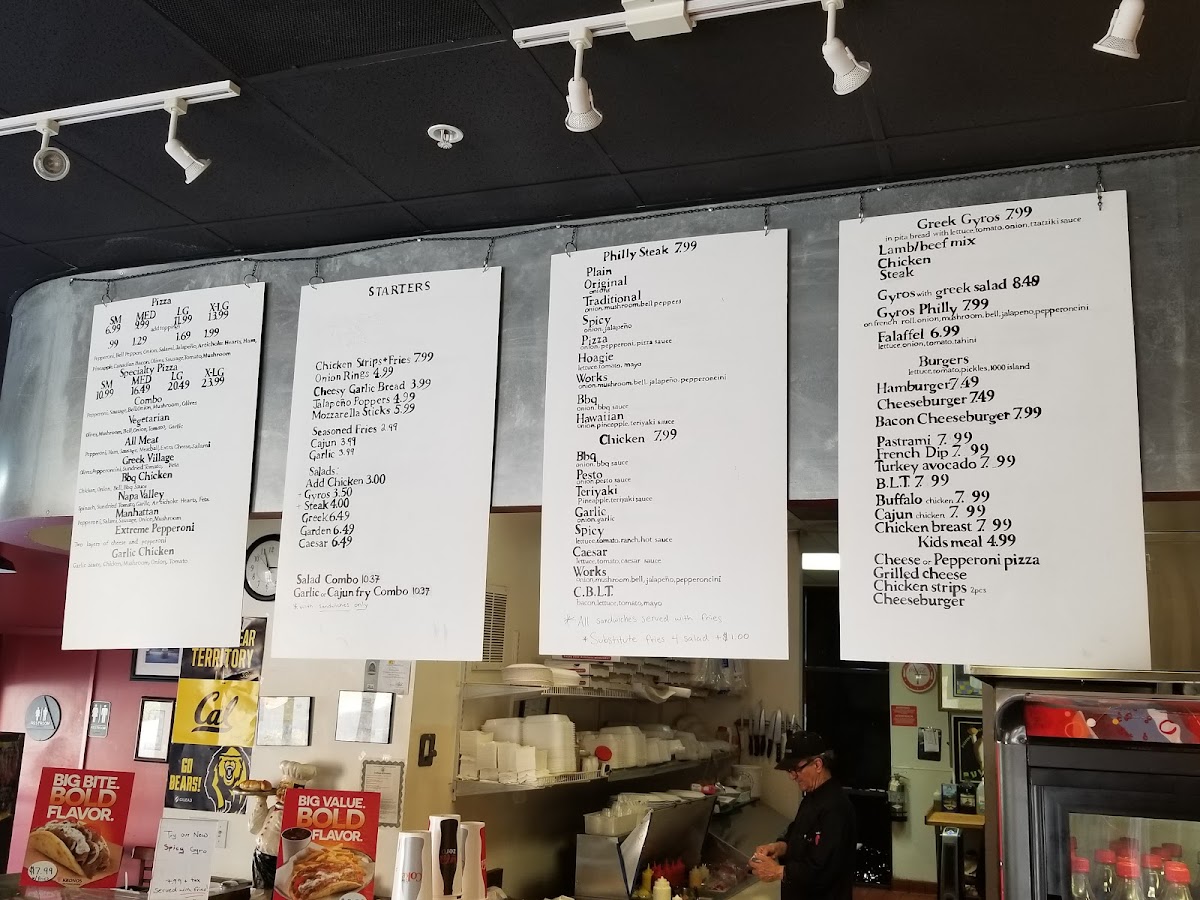 Pizza
SM MED LG X-LG
6.99 9.99 11.99 13.99
add topping
.99 1.29 1.69 1.99
Pepperoni, Bell Pepper, Onion, Salami, Jalapeño, Artichoke Hearts, Ham,
Pineapple, Canadian Bacon, Olives, Sausage, Tomato, Mushroom
Specialty Pizza
SM MED LG X-LG
10.99 16.49 20.49 23.99
Combo
Pepperoni, Sausage, Bell, Onion, Mushroom, Olives
Vegetarian
Olives, Mushroom, Bell, Onion, Tomato, Garlic
All Meat
Pepperoni, Ham, Sausage, Meatball, Extra Cheese, Salami
Greek Village
Olives, Pepperoncini, Sundried Tomato, Feta
Bbq Chicken
Chicken, Onion, Bell, Bbq Sauce
Napa Valley
Spinach, Sundried Tomato, Garlic, Artichoke Hearts, Feta
Manhattan
Pepperoni, Salami, Sausage, Onion, Mushroom
Extreme Pepperoni
Two layers of cheese and pepperoni
Garlic Chicken
Garlic Sauce, Chicken, Mushroom, Onion, Tomato
STARTERS
Chicken Strips+Fries 7.99
Onion Rings 4.99
Cheesy Garlic Bread 3.99
Jalapeño Poppers 4.99
Mozzarella Sticks 5.99
Seasoned Fries 2.99
Cajun 3.99
Garlic 3.99
Salads:
Add Chicken 3.00
- Gyros 3.50
+ Steak 4.00
Greek 6.49
Garden 6.49
Caesar 6.49
Salad Combo 10.37
Garlic or Cajun fry Combo 10.37
* with sandwiches only
Philly Steak 7.99
Plain
Original
onions
Traditional
onion, mushroom, bell peppers
Spicy
onion, jalapeño
Pizza
onion, pepperoni, pizza sauce
Hoagie
lettuce, tomato, mayo
Works
onion, mushroom, bell, jalapeño, pepperoncini
Bbq
onion, bbq sauce
Hawaiian
onion, pineapple, teriyaki sauce
Chicken 7.99
Bbq
onion, bbq sauce
Pesto
onion, pesto sauce
Teriyaki
Pineapple, teriyaki sauce
Garlic
onion, garlic
Spicy
lettuce, tomato, ranch, hot sauce
Caesar
lettuce, tomato, caesar sauce
Works
onion, mushroom, bell, jalapeño, pepperoncini
C.B.L.T.
bacon, lettuce, tomato, mayo
** All sandwiches served with fries
+ Substitute fries 4 salad +$1.00
Greek Gyros 7.99
in pita bread with lettuce, tomato, onion, tzatziki sauce
Lamb/beef mix
Chicken
Steak
Gyros with greek salad 8.49
Gyros Philly 7.99
on french roll, onion, mushroom, bell, jalapeno, pepperoncini
Falaffel 6.99
lettuce, onion, tomato, tahini
Burgers
lettuce, tomato, pickles, 1000 island
Hamburger 7.49
Cheeseburger 7.49
Bacon Cheeseburger 7.99
Pastrami 7.99
French Dip 7.99
Turkey avocado 7.99
B.L.T. 7.99
Buffalo chicken 7.99
Cajun chicken 7.99
Chicken breast 7.99
Kids meal 4.99
Cheese or Pepperoni pizza
Grilled cheese
Chicken strips 2pcs
Cheeseburger
BEAR
TERRITORY
Cal
GO
BEARS!
BIG BITE.
BOLD
FLAVOR.
$7.99
KRONOS
Try our New
Spicy Gyro
7.99 + tax
Served with fries
BIG VALUE.
BOLD
FLAVOR.